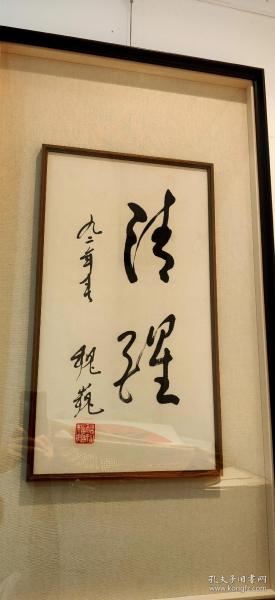 清醒
九二年春
魏巍
孔夫子旧书网
www.kongfz.com